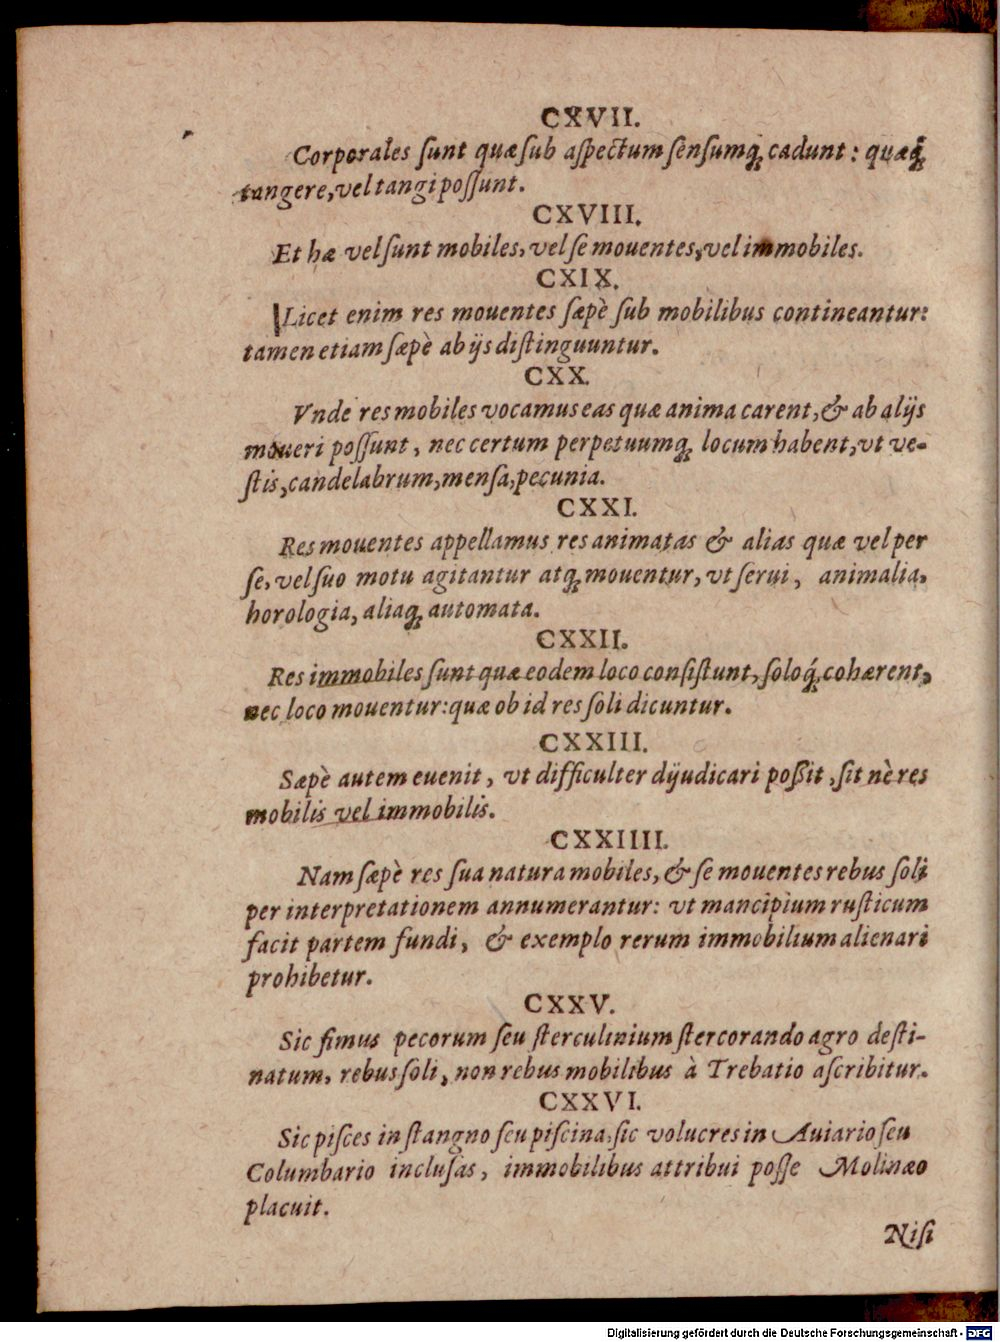 CXVII.
Corporales ſunt quæ ſub aſpectum ſenſumq́; cadunt: quæq́;
tangere, vel tangi poſſunt.
CXVIII.
Et hæ vel ſunt mobiles, vel ſe mouentes, vel immobiles.
CXIX.
Licet enim res mouentes ſæpè ſub mobilibus contineantur:
tamen etiam ſæpè ab ijs diſtinguuntur.
CXX.
Vnde res mobiles vocamus eas quæ anima carent, & ab alijs
moueri poſſunt, nec certum perpetuumq́; locum habent, vt ve-
ſtis, candelabrum, menſa, pecunia.
CXXI.
Res mouentes appellamus res animatas & alias quæ vel per
ſe, vel ſuo motu agitantur atq́; mouentur, vt ſerui, animalia,
horologia, aliaq́; automata.
CXXII.
Res immobiles ſunt quæ eodem loco conſiſtunt, ſoloq́; cohærent,
nec loco mouentur: quæ ob id res ſoli dicuntur.
CXXIII.
Sæpè autem euenit, vt difficulter dijudicari poßit, ſit nè res
mobilis vel immobilis.
CXXIIII.
Nam ſæpè res ſua natura mobiles, & ſe mouentes rebus ſoli
per interpretationem annumerantur: vt mancipium ruſticum
facit partem fundi, & exemplo rerum immobilium alienari
prohibetur.
CXXV.
Sic fimus pecorum ſeu ſterculinium ſtercorando agro deſti-
natum, rebus ſoli, non rebus mobilibus à Trebatio aſcribitur.
CXXVI.
Sic piſces in ſtangno ſeu piſcina: ſic volucres in Auiario ſeu
Columbario incluſas, immobilibus attribui poſſe Molinæo
placuit.
Niſi
Digitalisierung gefördert durch die Deutsche Forschungsgemeinschaft - DFG